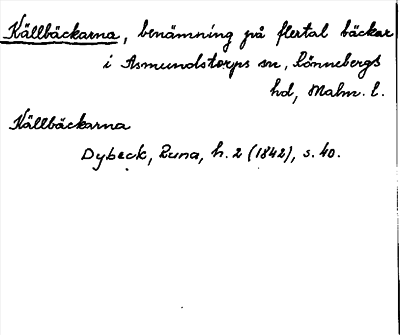 Källbäckarna, benämning på flertal bäckar
i Asmundstorps sn, Rönnebergs
hd, Malm. l.
Källbäckarna
Dybeck, Runa, h. 2 (1842), s. 40.